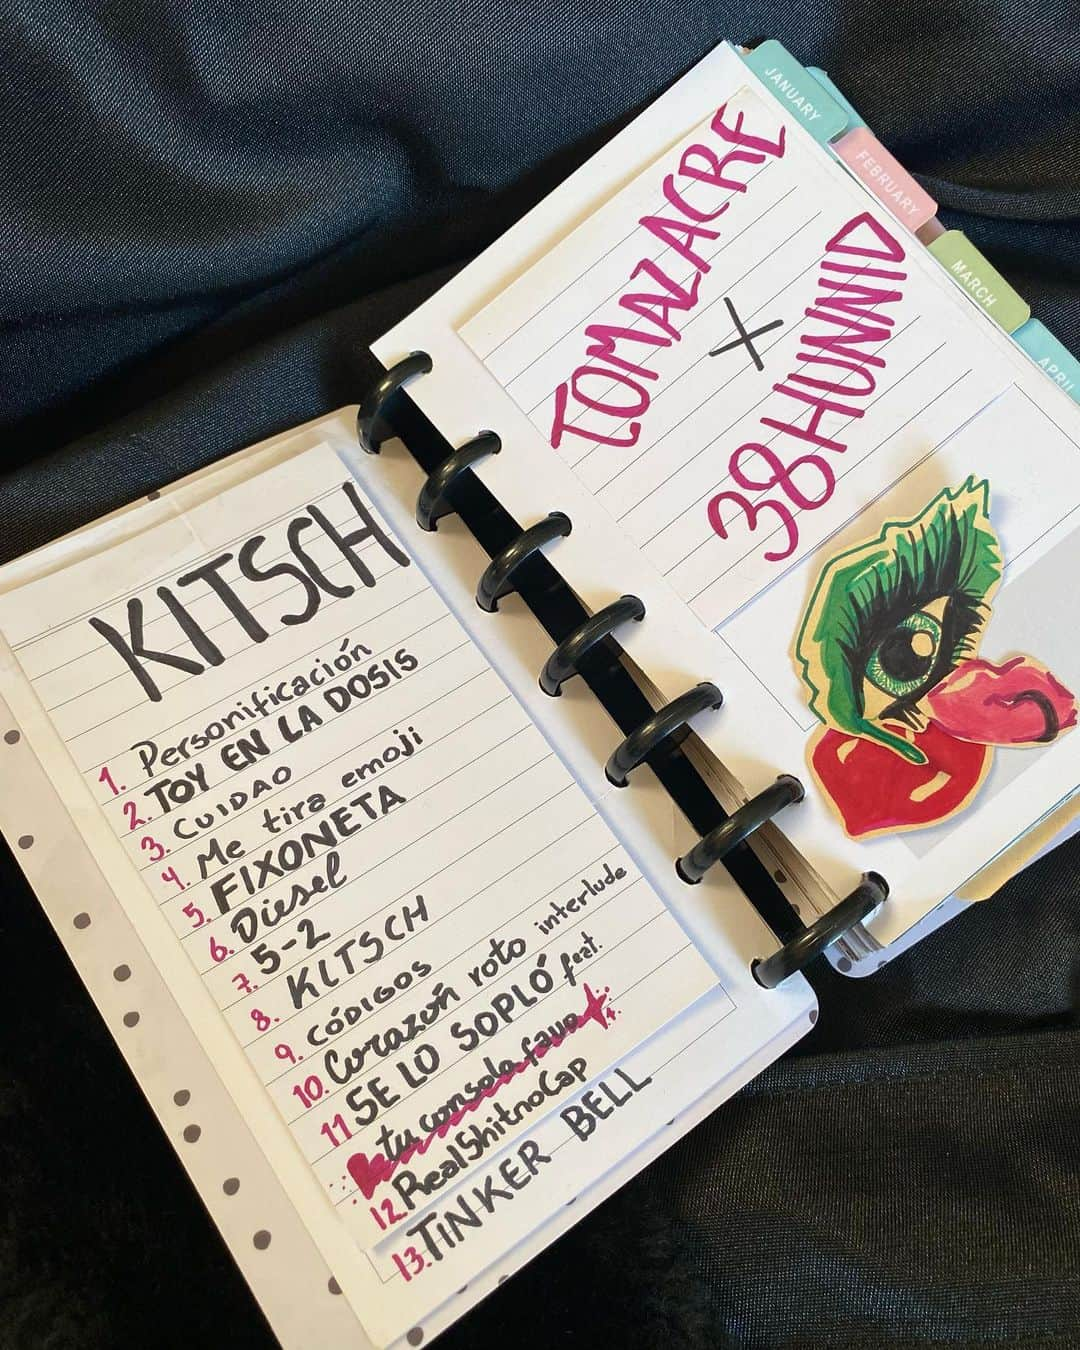 KITSCH
1. Personificación
2. TOY EN LA DOSIS
3. CUIDAO
4. Me tira emoji
5. FIXONETA
6. Diesel
7. 5-2
8. KITSCH
9. CÓDIGOS
10. Corazón roto interlude
11 SE LO SOPLÓ feat.
tu consola favo
12. RealShitnoCap
13. TINKER BELL
TOMAZACRE
X
38HUNNID
JANUARY
FEBRUARY
MARCH
APRIL